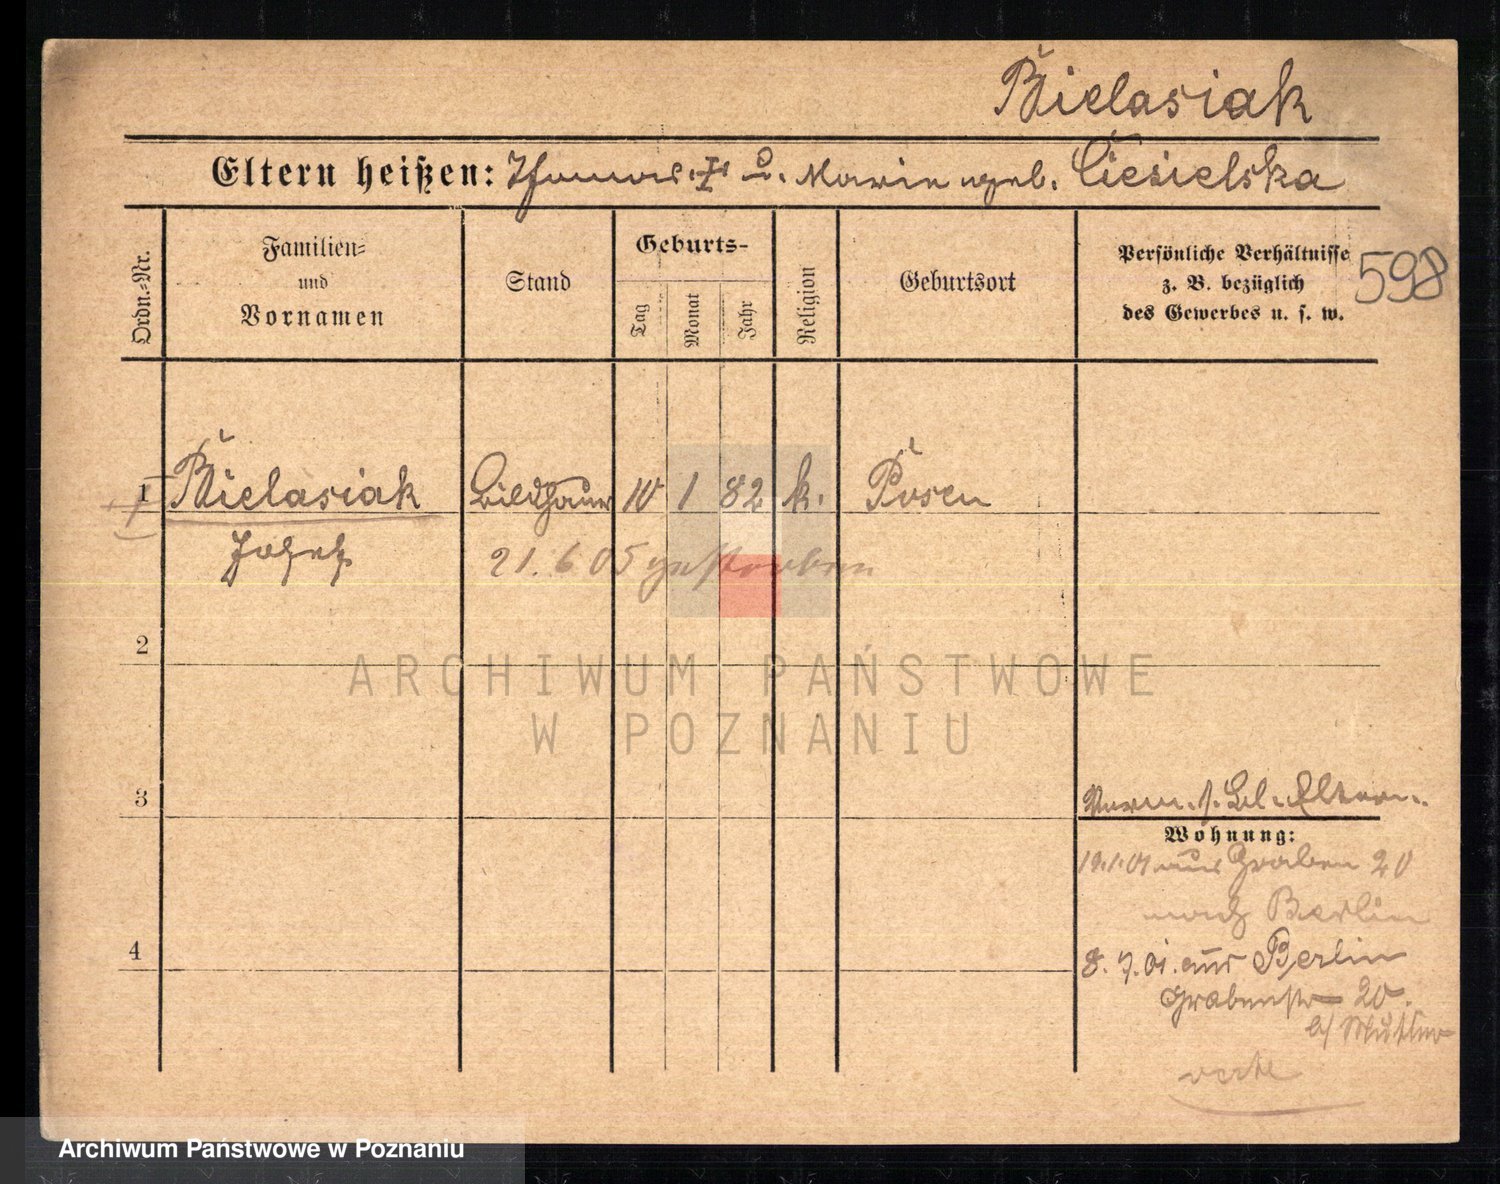 Bielasiak
Eltern heißen: Thomas † u. Marie geb. Ciesielska
Ordn.-Nr.
Familien-
und
Vornamen
Stand
Geburts-
Tag
Monat
Jahr
Religion
Geburtsort
Persönliche Verhältnisse
z. B. bezüglich
des Gewerbes u. s. w.
598
1 Bielasiak Bildhauer 10 1 82 k. Posen
Josef
21. 6 05 gestorben
2
ARCHIWUM PAŃSTWOWE
W POZNANIU
3
Vorm. s. Bl. Eltern.
Wohnung:
aus Graben 20
nach Berlin
4
8. 7. 01. aus Berlin
Grabenstr 20.
b/ Mutter
verte
Archiwum Państwowe w Poznaniu